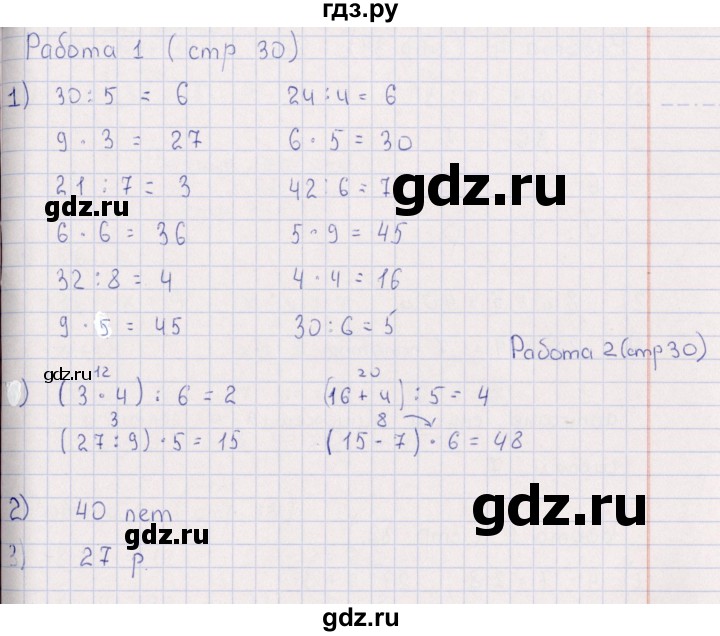 гдз.ру
Работа 1 (стр 30)
1) 30 : 5 = 6 24 : 4 = 6
9 · 3 = 27 6 · 5 = 30
21 : 7 = 3 42 : 6 = 7
gdz.ru
gdz.ru
6 · 6 = 36 5 · 9 = 45
32 : 8 = 4 4 · 4 = 16
9 · 5 = 45 30 : 6 = 5
Работа 2 (стр 30)
gdz.ru
12 20
) (3 · 4) : 6 = 2 (16 + 4) : 5 = 4
3 8
(27 : 9) · 5 = 15 (15 - 7) · 6 = 48
gdz.ru
2) 40 лет
gdz.ru
3) 27 р.
gdz.ru